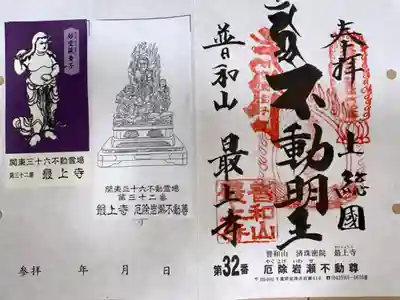 関東三十六不動霊場
第三十二番
最上寺
関東三十六不動霊場
第三十二番
最上寺 厄除岩瀬不動尊
参拝 年 月 日
奉拝
上総國
不動明王
普和山
最上寺
普和山 済珠密院 最上寺
第32番
やくよけ いわせ
厄除岩瀬不動尊